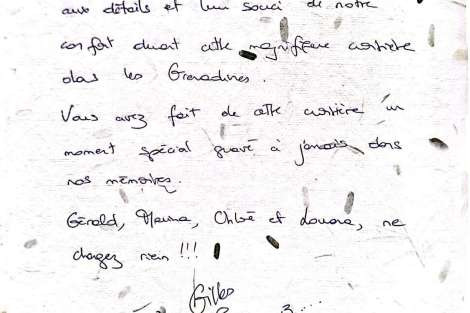 aux détails et leur souci de notre
confort durant cette magnifique croisière
dans les Grenadines.
Vous avez fait de cette croisière un
moment spécial gravé à jamais dans
nos mémoires.
Gérald, Chloé et ne
changez rien !!!
Gilles